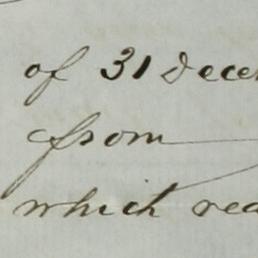 of 31 Dece
from
which rea